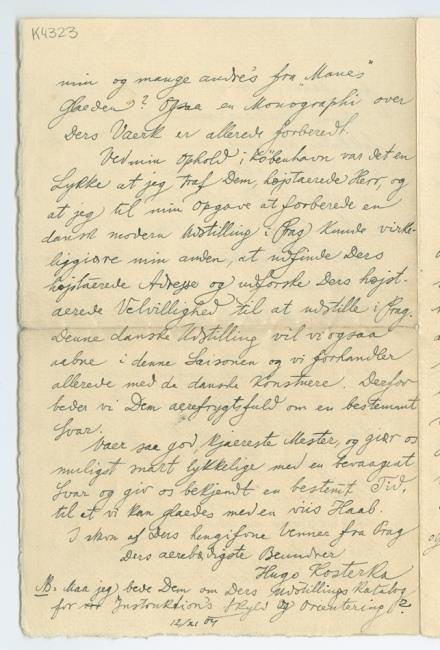 K4323
min og mange andre's fra "Manes"
Glaeden? Ogsaa en Monographi over
Ders Vaerk er allerede forberedt.
Ved min Ophold i København var det en
Lykke at jeg traf Dem, højstaerede Herr, og
at jeg til min Opgave at forberede en
dansk modern Udstilling i Prag kunde virke-
liggiøre min anden, at udfinde Ders
højstaerede Adresse og udforske Ders højst-
aerede Velvillighed til at udstille i Prag.
Denne danske Udstilling vil vi ogsaa
aabne i denne Saisonen og vi forhandler
allerede med da danske Konstnere. Derfor
beder vi Dem aerefrygtsfuld om en bestemmt
Svar.
Vaer saa god, kjaereste Mester, og giør os
muligst snart lykkelige med en bevaagent
Svar og giv os bekjendt en bestemt Tid,
til at vi kan glaedes med en viis Haab.
I skon af Ders hengifvne Venner fra Prag
Ders aerebødigste Beundrer
Hugo Kosterka
NB. Maa jeg bede Dem om Ders Udstillings Katalog
for Instruktion's Skyld og Orientering?
12/XI 04